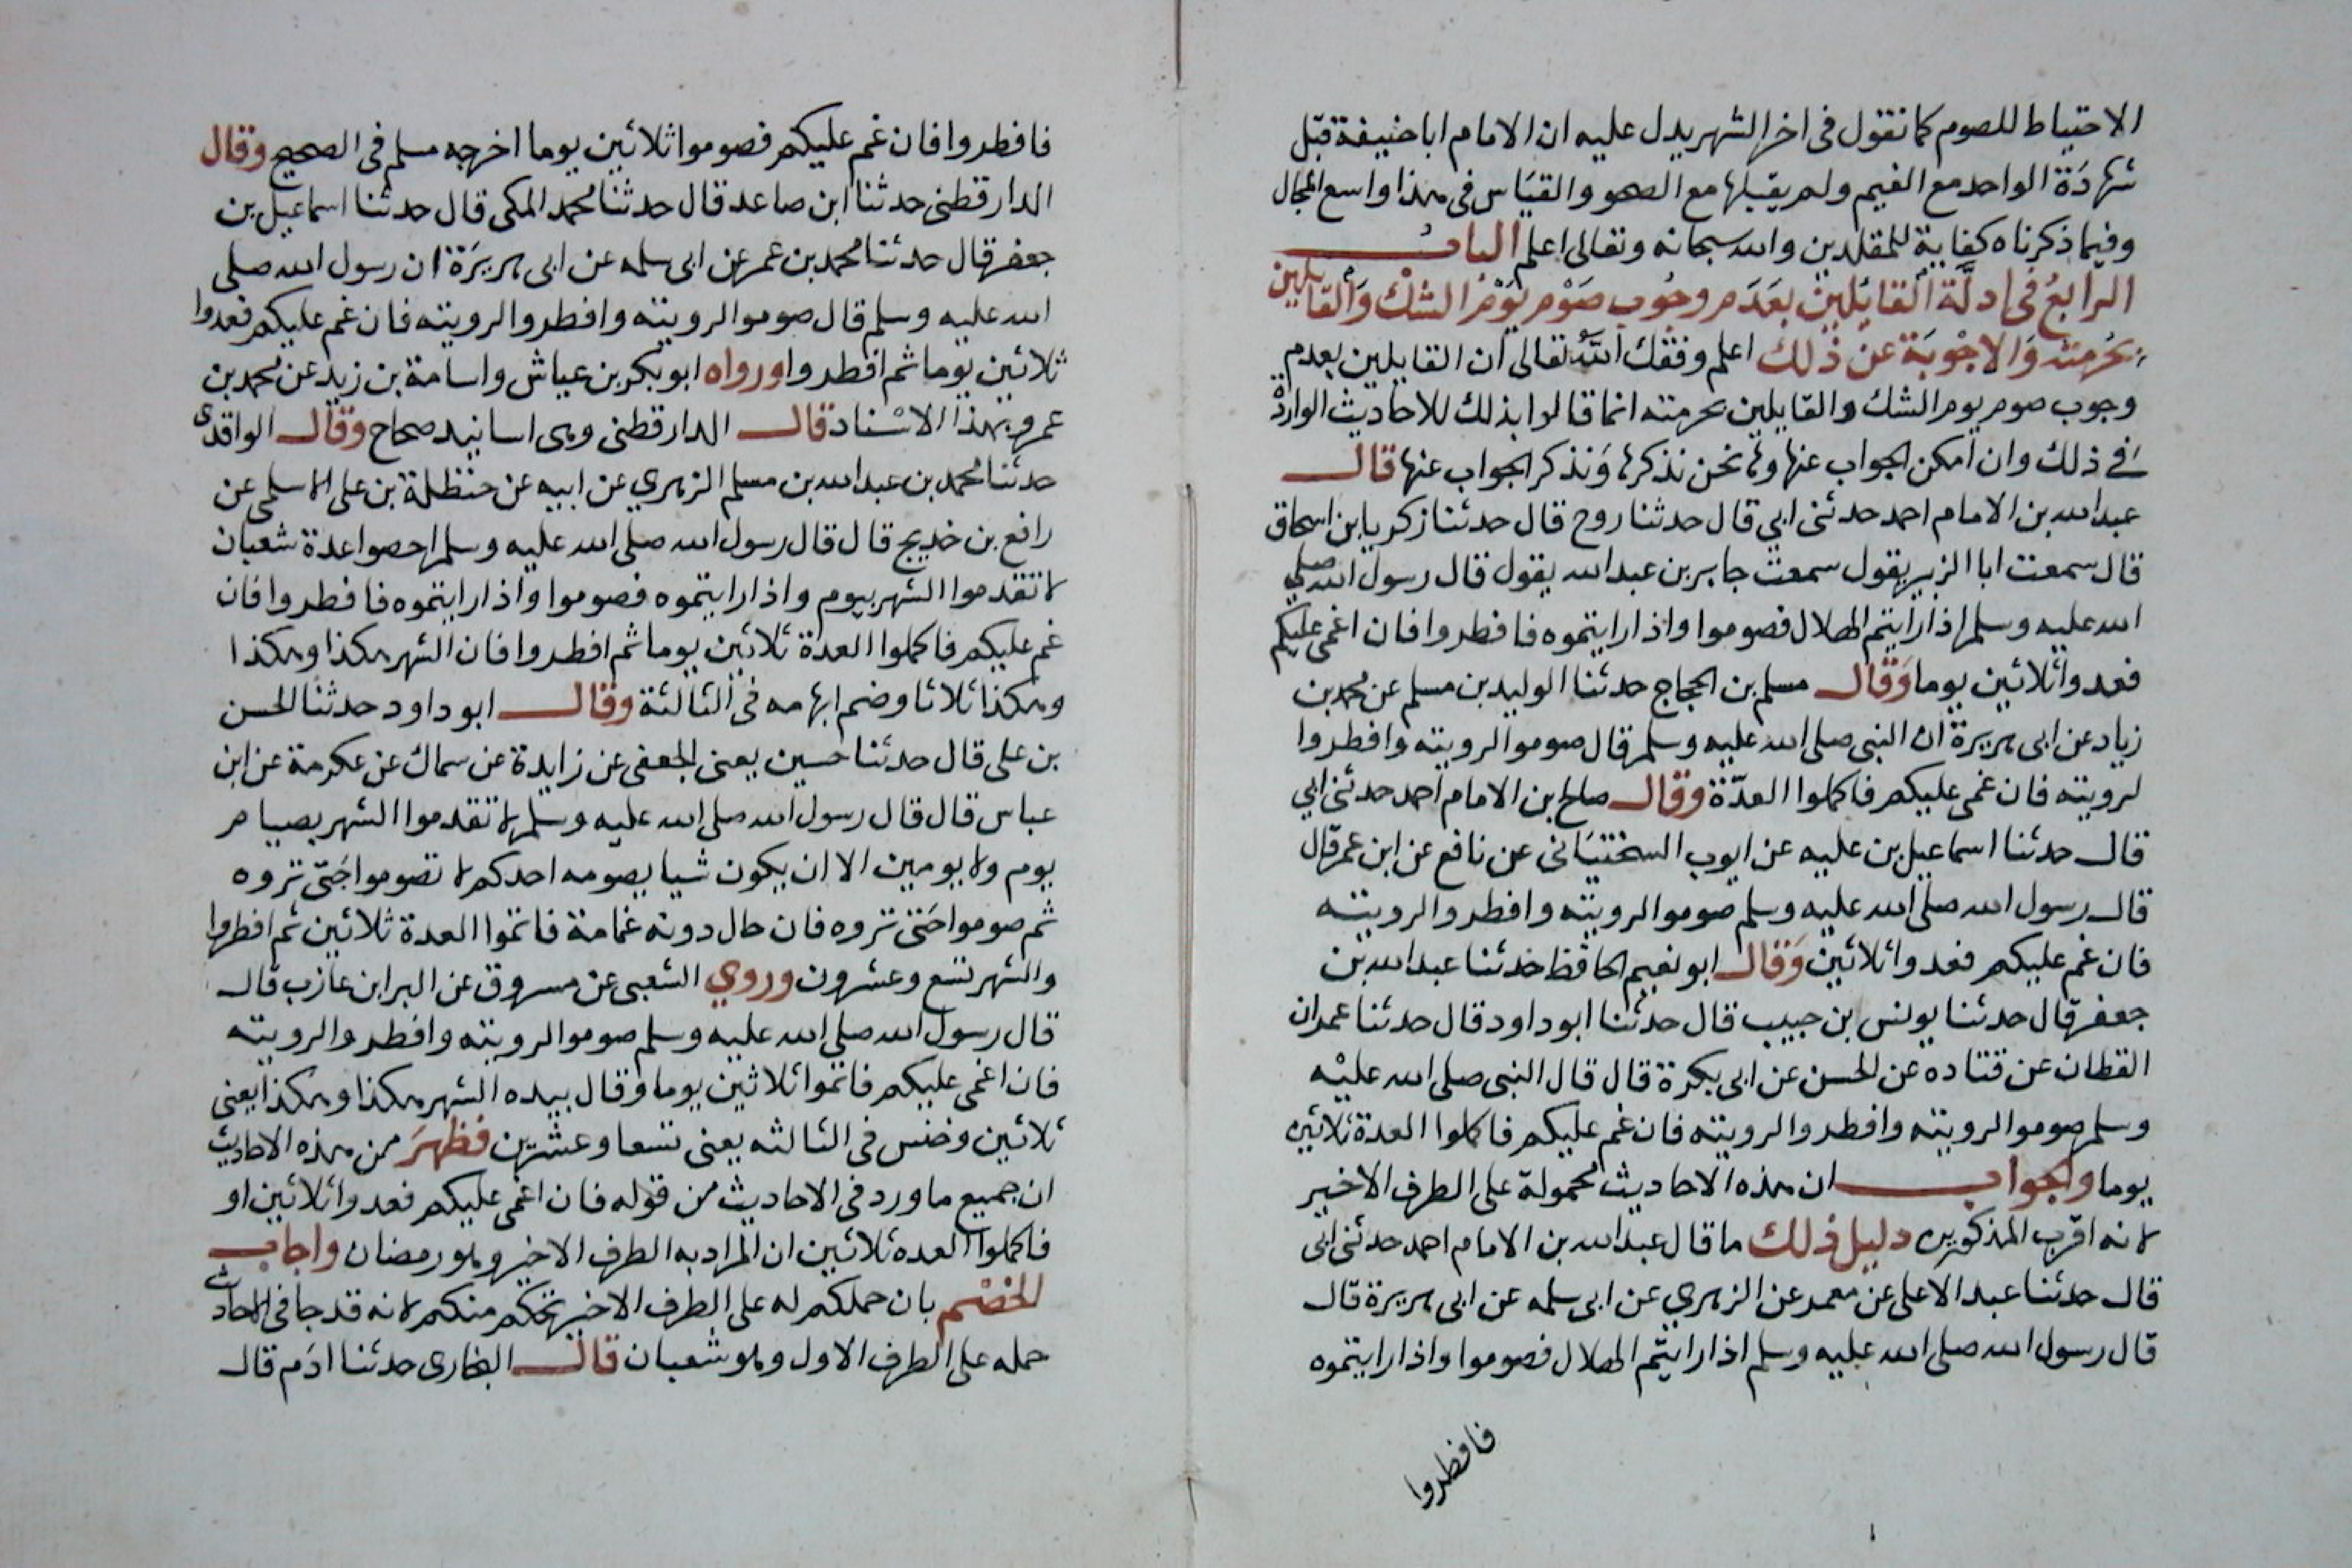 الاحتياط للصوم كما نقول فى اخر الشهر يدل عليه ان الامام ابا حنيفة قبل
شهادَة الواحد مع الغيم ولم يقبلها مع الصحو والقيَاس فى هذا واسع المجال
وفيما ذكرناه كفاية للمقلدين والله سبحانه وتعالى اعلم الباب
الرّابعُ فى ادلَّة القائلين بعَدَم وجُوب صَوْم يَوْم الشك وَالقايلين
بحُرمته وَالاجْوبَة عن ذلك اعلم وفقك اللّه تعالى ان القايلين بعدم
وجوب صوم يوم الشك والقايلين بحرمته انما قالوا بذلك للاحاديث الواردة
فى ذلك وان امكن الجواب عنها وها نحن نذكرها وَنذكر الجواب عنها قال
عبد الله بن الامام احمد حدثنى ابي قال حدثنا روح قال حدثنا زكريا بن اسحاق
قال سمعت ابا الزبير يقول سمعت جابر بن عبد الله يقول قال رسول الله صلى
الله عليه وسلم اذا رايتم الهلال فصوموا واذا رايتموه فافطروا فان اغمى عليكم
فعدوا ثلاثين يوما وَقال مسلم بن الحجاج حدثنا الوليد بن مسلم عن محمد بن
زياد عن ابى هريرة ان النبى صلى الله عليه وسلم قال صوموا لرويته وافطروا
لرويته فان غمى عليكم فاكملوا العدّة وقال صالح ابن الامام احمد حدثنى ابي
قال حدثنا اسماعيل بن عليه عن ايوب السختيَانى عن نافع عن ابن عمر قال
قال رسول الله صلى الله عليه وسلم صوموا لرويته وافطروا لرويته
فان غم عليكم فعدوا ثلاثين وَقال ابو نعيم الحافظ حدثنا عبد الله بن
جعفر قال حدثنا يونس بن حبيب قال حدثنا ابو داود قال حدثنا عمران
القطان عن قتاده عن الحسن عن ابى بكرة قال قال النبى صلى الله عليْه
وسلم صوموا لرويته وافطروا لرويته فان غم عليكم فاكملوا العدة ثلاثين
يوما والجواب ان هذه الاحاديث محمولة على الطرف الاخير
لانه اقرب المذكورين دليل ذلك ما قال عبد الله بن الامام احمد حدثنى ابى
قال حدثنا عبد الاعلى عن معمر عن الزهري عن ابى سلمه عن ابى هريرة قال
قال رسول الله صلى الله عليه وسلم اذا رايتم الهلال فصوموا واذا رايتموه
فافطروا
فافطروا فان غم عليكم فصوموا ثلاثين يوما اخرجه مسلم فى الصحيح وقال
الدارقطنى حدثنا ابن صاعد قال حدثنا محمد المكى قال حدثنا اسماعيل بن
جعفر قال حدثنا محمد بن عمر عن ابى سلمه عن ابى هريرَة ان رسول الله صلى
الله عليه وسلم قال صوموا لرويته وافطروا لرويته فان غم عليكم فعدوا
ثلاثين يوما ثم افطروا ورواه ابو بكر بن عياش واسامة بن زيد عن محمد بن
عمرو بهذا الاسْناد قال الدارقطنى وهى اسانيد صحاح وقال الواقدى
حدثنا محمد بن عبد الله بن مسلم الزهري عن ابيه عن حنظلة بن على الاسلمى عن
رافع بن خديج قال قال رسول الله صلى الله عليه وسلم احصوا عدة شعبان
لا تقدموا الشهر بيوم واذا رايتموه فصوموا واذا رايتموه فافطروا فان
غم عليكم فاكملوا العدة ثلاثين يوما ثم افطروا فان الشهر هكذا وهكذا
وهكذا ثلاثا وضم ابهامه فى الثالثة وقال ابو داود حدثنا الحسن
بن على قال حدثنا حسين يعنى الجعفى عن زايدة عن سماك عن عكرمة عن ابن
عباس قال قال رسول الله صلى الله عليه وسلم لا تقدموا الشهر بصيام
يوم ولا يومين الا ان يكون شيا يصومه احدكم لا تصوموا حَتى تروه
ثم صوموا حَتى تروه فان حال دونه غمامة فاتموا العدة ثلاثين ثم افطروا
والشهر تسع وعشرون وروي الشعبى عن مسروق عن البرا بن عازب قال
قال رسول الله صلى الله عليه وسلم صوموا لرويته وافطروا لرويته
فان اغمى عليكم فاتموا ثلاثين يوما وقال بيده الشهر هكذا وهكذا يعنى
ثلاثين وخنس فى الثالثه يعنى تسعا وعشرين فظهرَ من هذه الاحاديث
ان جميع ما ورد فى الاحاديث من قوله فان اغمى عليكم فعدوا ثلاثين او
فاكملوا العده ثلاثين ان المراد به الطرف الاخير وهو رمضان واجاب
الخصْم بان حملكم له على الطرف الاخير تحكم منكم لانه قد جا فى الاحاديث
حمله على الطرف الاول وهو شعبان قال البخارى حدثنا ادَم قال